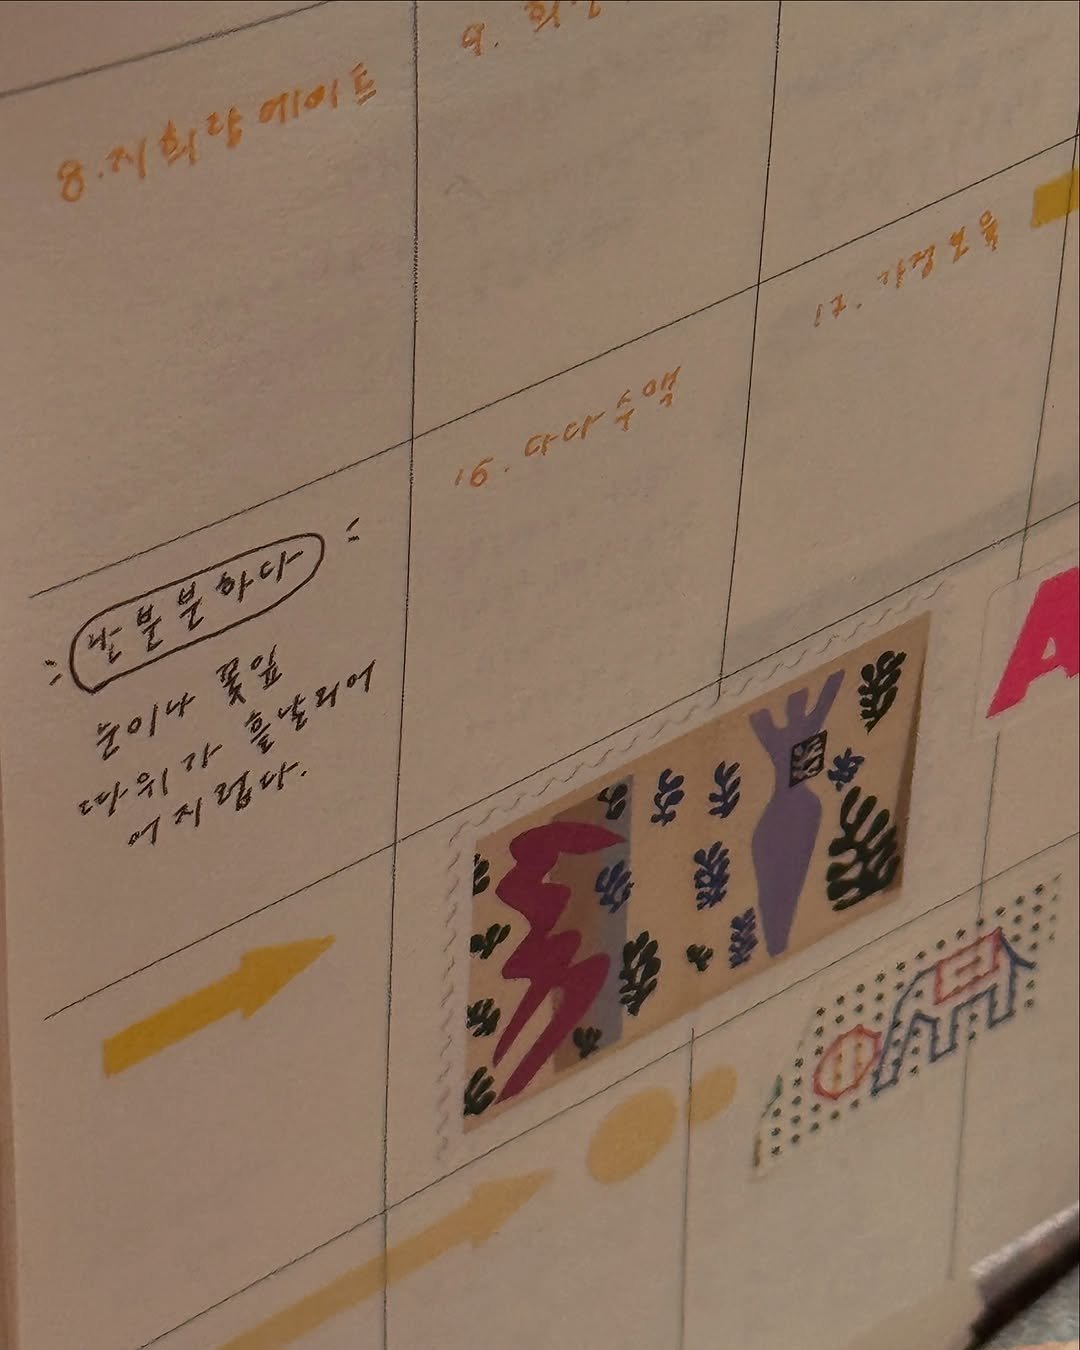 8. 지희랑 데이트
9.
16. 다다 수액
17. 가정보육
난분분하다
눈이나 꽃잎
따위가 흩날리어
어지럽다.
A